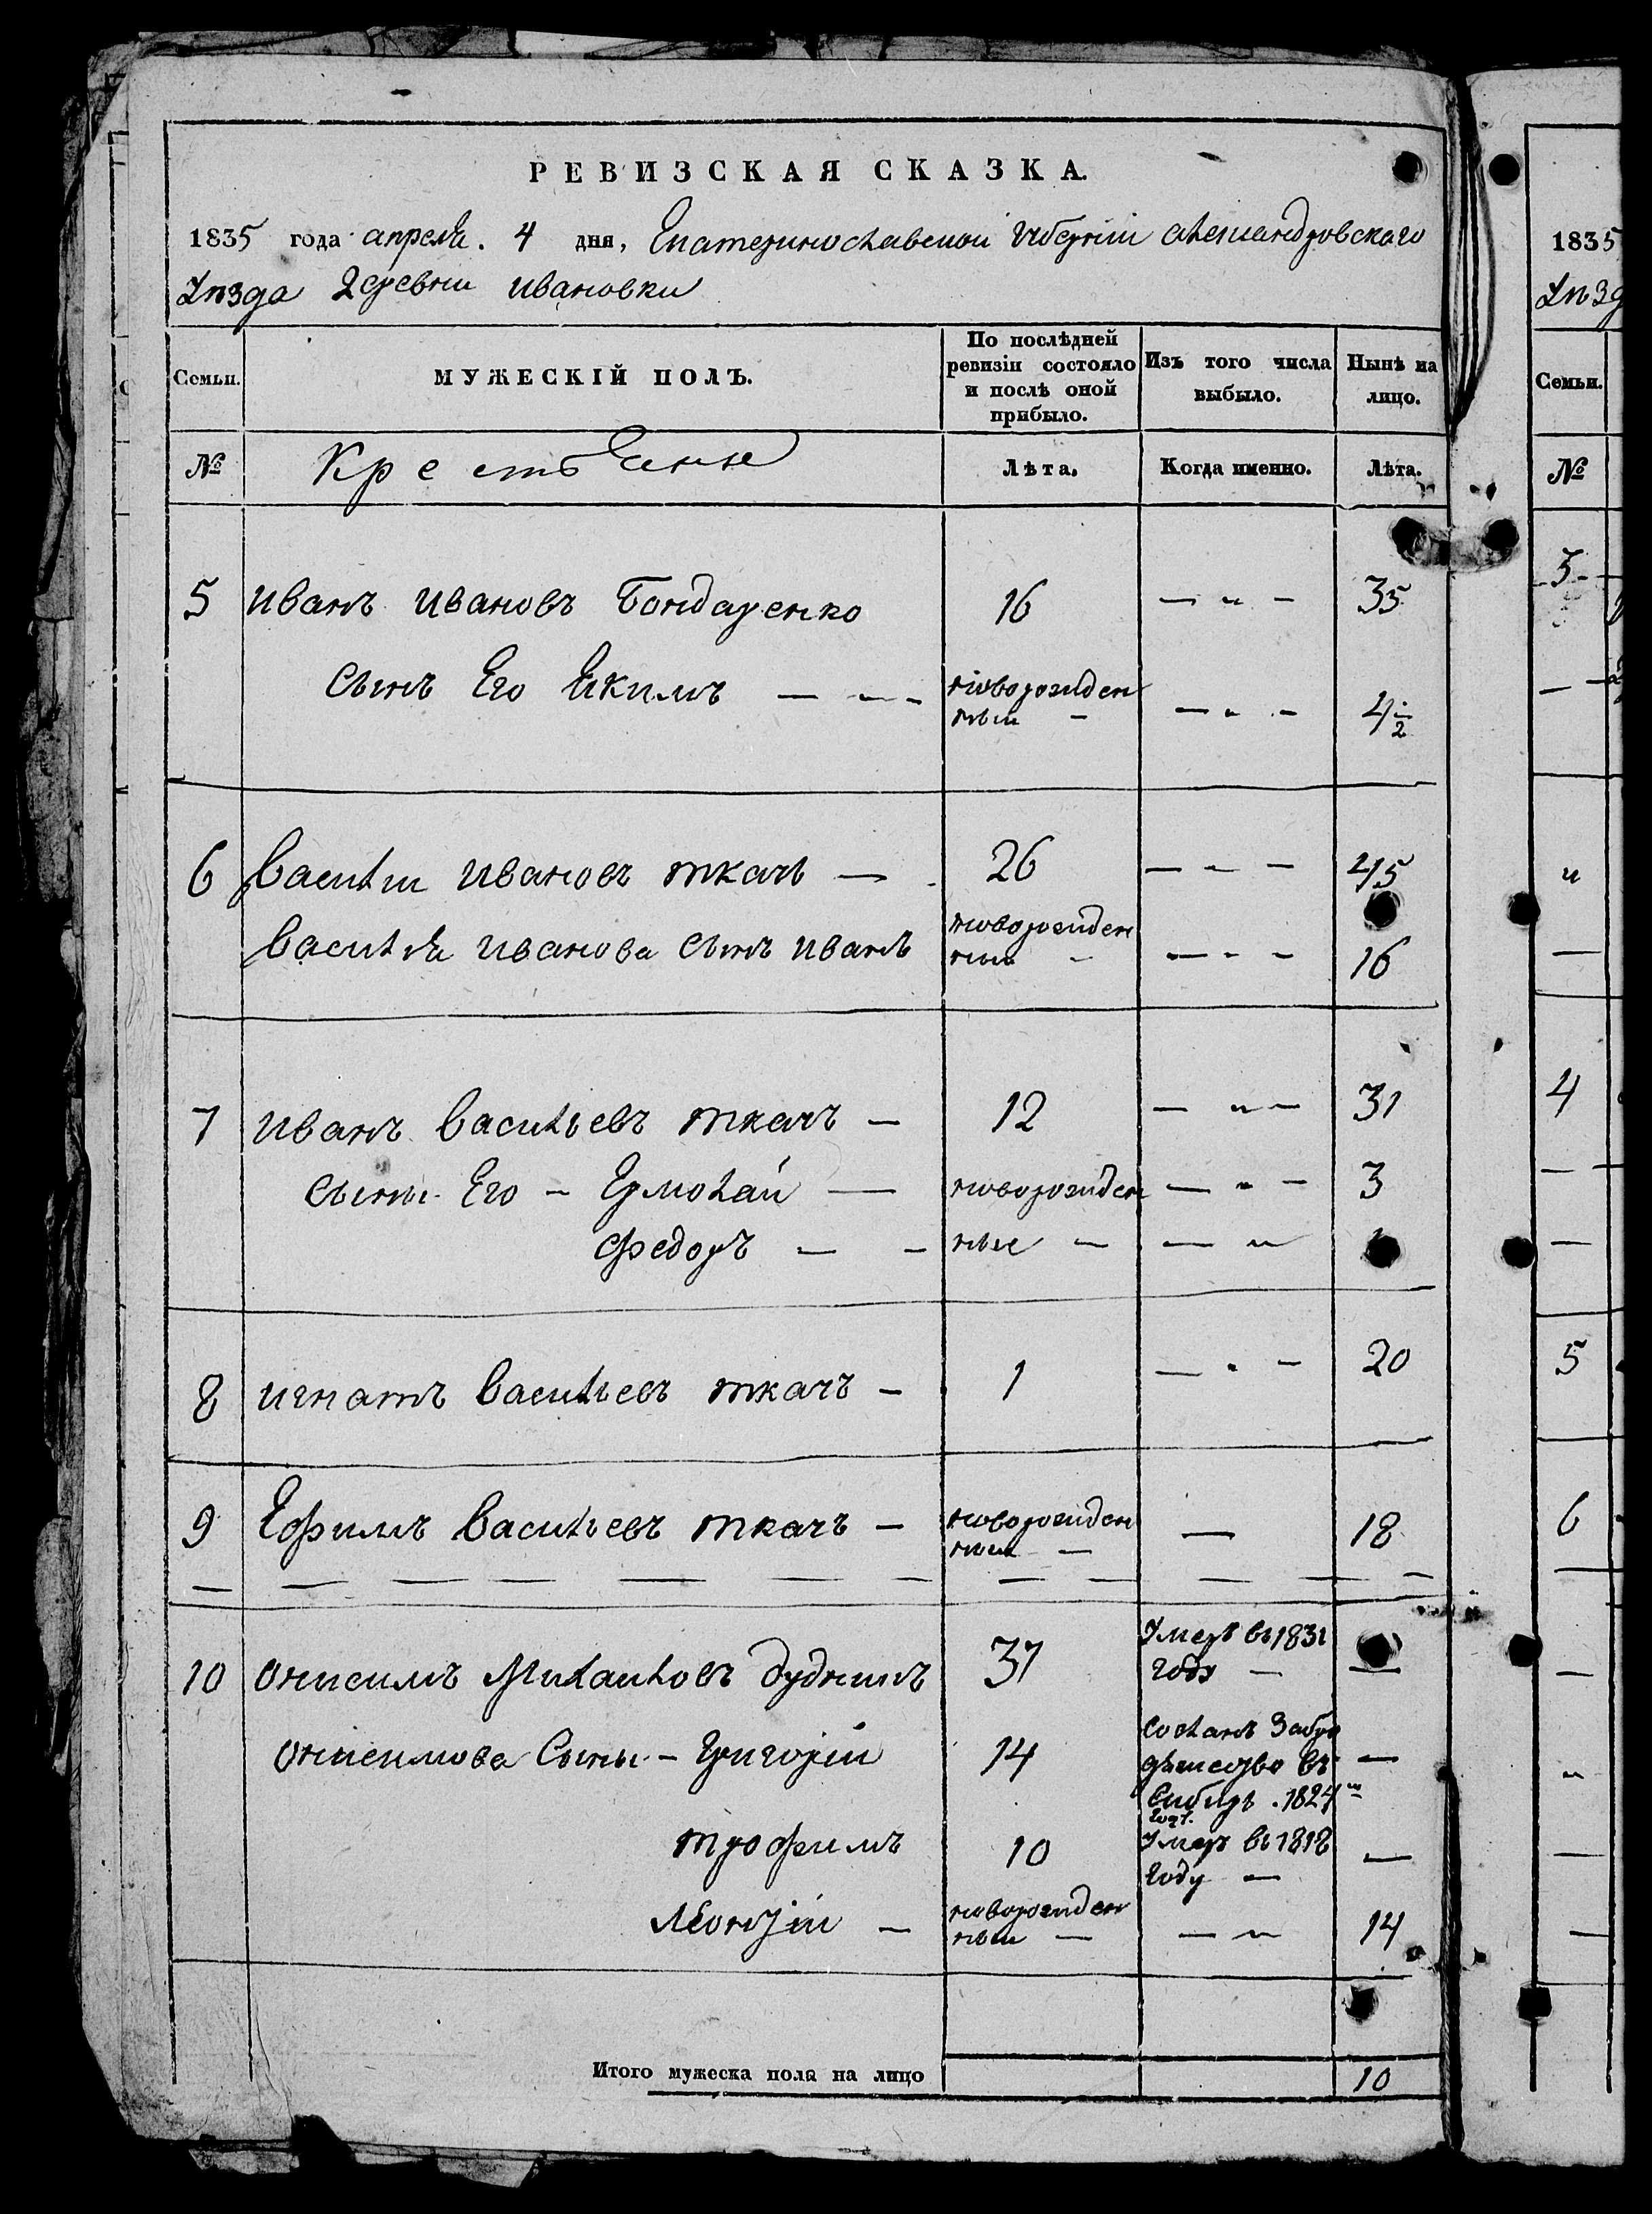 РЕВИЗСКАЯ СКАЗКА.
1835 года апреля. 4 дня, Екатеринославской губернiи александровского
Уѣзда деревни ивановки
Семьи. МУЖЕСКIЙ ПОЛЪ. По послѣдней ревизiи состояло и послѣ оной прибыло. Изъ того числа выбыло. Нынѣ на лицо.
№ Крестьяне Лѣта. Когда именно. Лѣта.
5 иванъ ивановъ Бондаренко 16 — „ — 35
сынъ Его Екимъ — — — новорожден
ный — — „ — 4 1/2
6 Василiи ивановъ ткачь — 26 — „ — 45
новорожден
Василiя иванова сынъ иванъ ный — — „ — 16
7 иванъ Васильевъ ткачъ — 12 — „ — 31
сыны Его — Ермолай — новорожден — „ — 3
Федоръ — — ные — — „
8 игнатъ Васильевъ ткачъ — 1 — „ — 20
9 Ефимъ Васильевъ ткачъ — новорожден — 18
ный —
10 онисимъ Михаиловъ дудникъ 37 Умеръ въ 1831 —
году —
онисимова Сыны — Григорiи 14 Сосланъ
въ —
Сибирь. 1824
трофимъ 10 Умеръ въ 1818 —
году —
Леонтiи — новорожден
ный — — „ 14
Итого мужеска пола на лицо 10
1835
Уѣзд
Семьи.
№
4
5
6